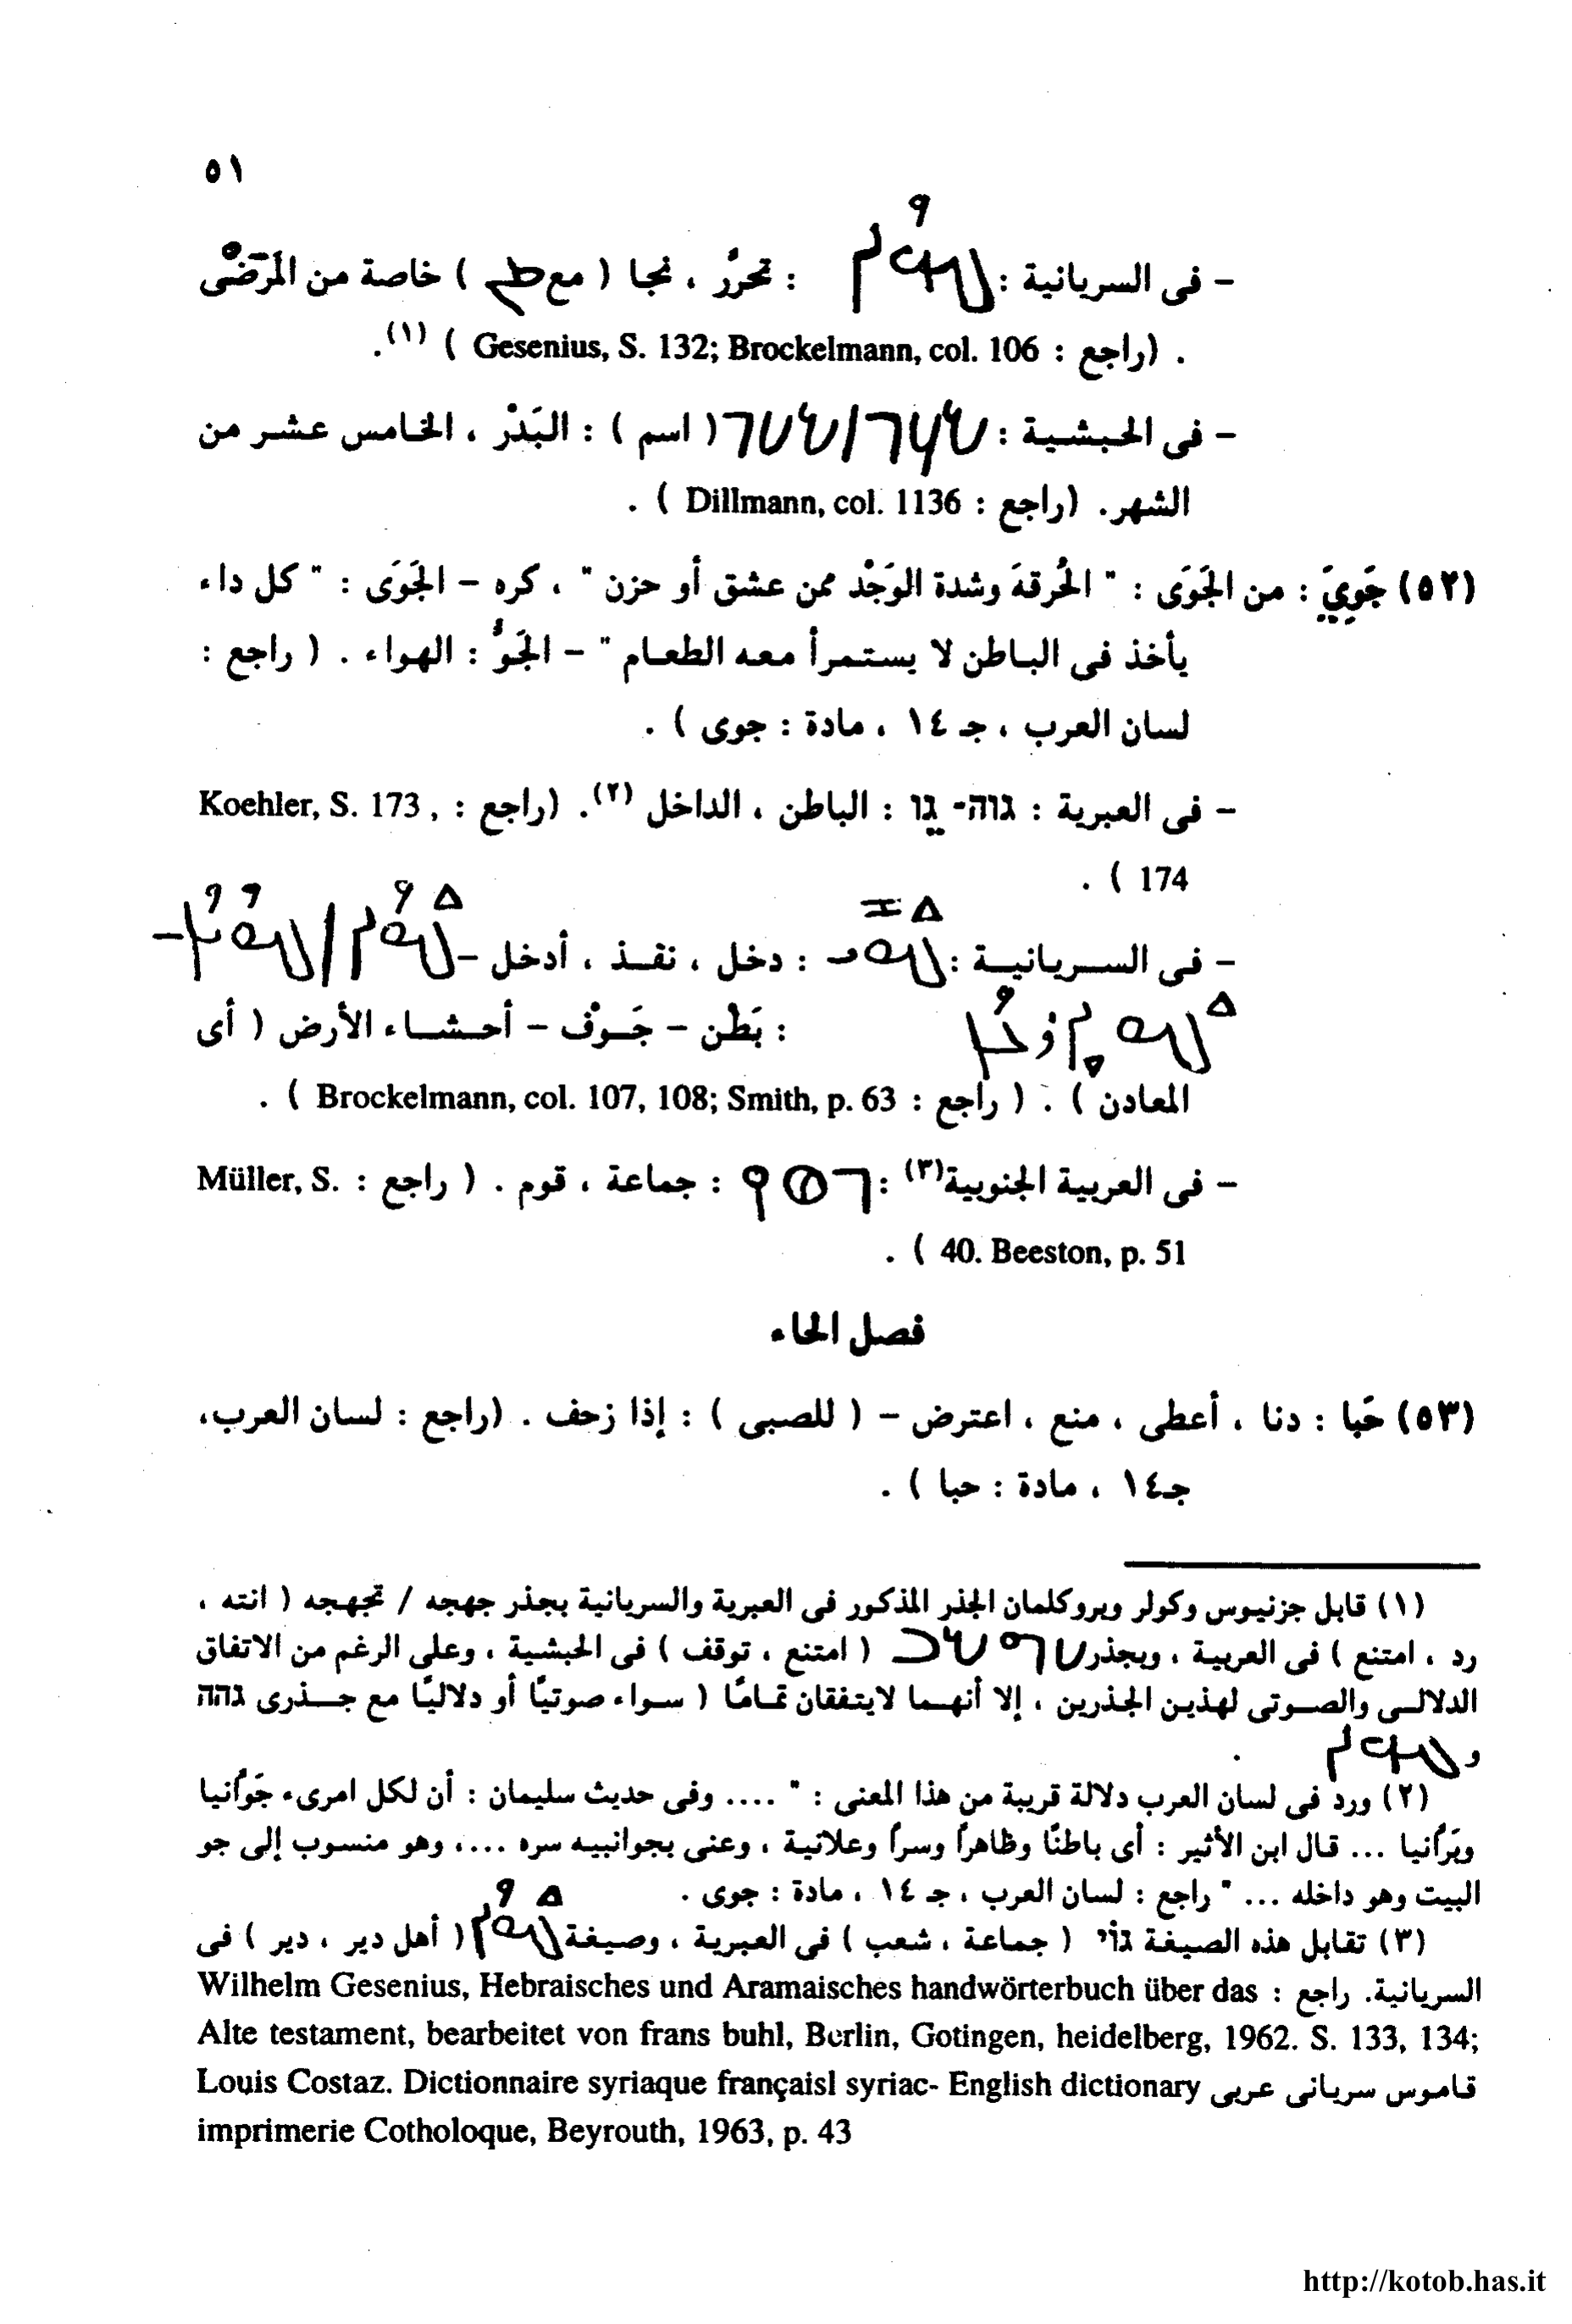 ٥١
- فى السريانية : : تحرَّر ، نجا ( مع ) خاصة من المَرَضْى
. (راجع : Gesenius, S. 132; Brockelmann, col. 106 ) (١).
- فى الحبشية : ( اسم ) : البَدْر ، الخامس عشر من
الشهر. (راجع : Dillmann, col. 1136 ) .
(٥٢) جَوِيَ : من الجَوَى : " الحُرقةَ وشدة الوَجْد ممن عشق أو حزن " ، كره - الجَوَى : " كل داء
يأخذ فى الباطن لا يستمرأ معه الطعام " - الجَوُّ : الهواء . ( راجع :
لسان العرب ، جـ ١٤ ، مادة : جوى ) .
- فى العبرية : גוה- גו : الباطن ، الداخل (٢). (راجع : Koehler, S. 173 ,
174 ) .
- فى السريانية : : دخل ، نفذ ، أدخل -
: بَطْن - جَوْف - أحشاء الأرض ( أى
المعادن ) . ( راجع : Brockelmann, col. 107, 108; Smith, p. 63 ) .
- فى العربية الجنوبية(٣) : : جماعة ، قوم . ( راجع : Müller, S.
40. Beeston, p. 51 ) .
فصل الحاء
(٥٣) حَبا : دنا ، أعطى ، منع ، اعترض - ( للصبى ) : إذا زحف . (راجع : لسان العرب،
جـ١٤ ، مادة : حبا ) .
(١) قابل جزنيوس وكولر وبروكلمان الجذر المذكور فى العبرية والسريانية بجذر جهجه / تجهجه ( انته ،
رد ، امتنع ) فى العربية ، وبجذر ( امتنع ، توقف ) فى الحبشية ، وعلى الرغم من الاتفاق
الدلالى والصوتى لهذين الجذرين ، إلا أنهما لايتفقان تمامًا ( سواء صوتيًا أو دلاليًا مع جذرى גהה
و .
(٢) ورد فى لسان العرب دلالة قريبة من هذا المعنى : " .... وفى حديث سليمان : أن لكل امرىء جَوَّانيا
وبَرَّانيا ... قال ابن الأثير : أى باطنًا وظاهراً وسراً وعلانية ، وعنى بجوانبيه سره ....، وهو منسوب إلى جو
البيت وهو داخله ... " راجع : لسان العرب ، جـ ١٤ ، مادة : جوى .
(٣) تقابل هذه الصيغة גוֹי ( جماعة ، شعب ) فى العبرية ، وصيغة ( أهل دير ، دير ) فى
السريانية. راجع : Wilhelm Gesenius, Hebraisches und Aramaisches handwörterbuch über das
Alte testament, bearbeitet von frans buhl, Berlin, Gotingen, heidelberg, 1962. S. 133, 134;
Louis Costaz. Dictionnaire syriaque françaisl syriac- English dictionary قاموس سريانى عربى
imprimerie Cotholoque, Beyrouth, 1963, p. 43
http://kotob.has.it